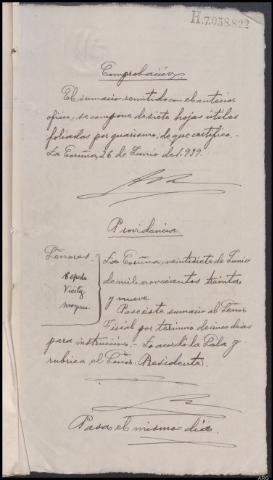 H.7.038.822
Comprobación
El sumario remitido con el anterior
oficio, se compone de siete hojas útiles
foliadas por guarismo, de que certifico.-
La Coruña, 26 de Junio de 1.939.
Providencia
Señores.
La Coruña, veintisiete de Junio
de mil novecientos treinta
y nueve
Pase éste sumario al Señor
Fiscal por término de cinco dias
para instrucción.- Lo acordó la Sala y
rubrica el Señor Presidente.
Pasa el mismo dia.